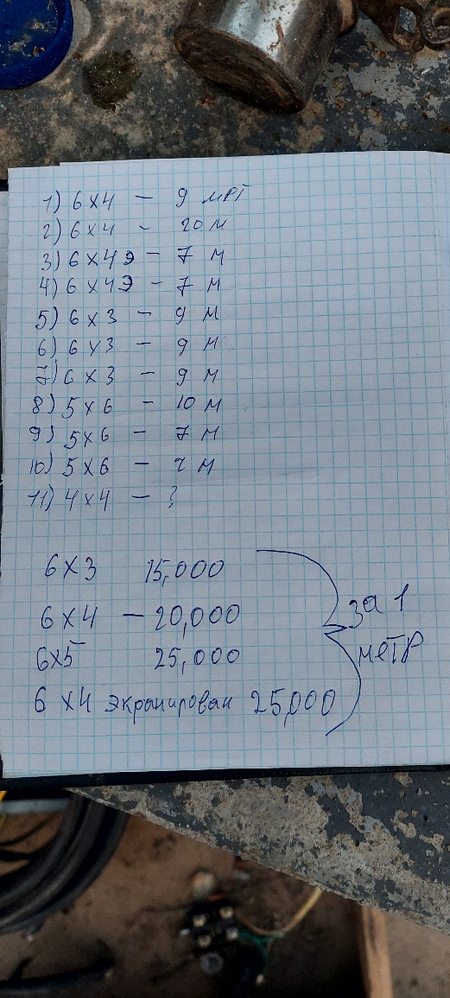 1) 6×4 — 9 мет
2) 6×4 - 20 м
3) 6×4Э — 7 м
4) 6×4Э — 7 м
5) 6×3 — 9 м
6) 6×3 — 9 м
7) 6×3 — 9 м
8) 5×6 — 10 м
9) 5×6 — 7 м
10) 5×6 — м
11) 4×4 — ?
6×3 15,000
6×4 — 20,000
6×5 25,000
6×4 экранирован 25,000
за 1
метр